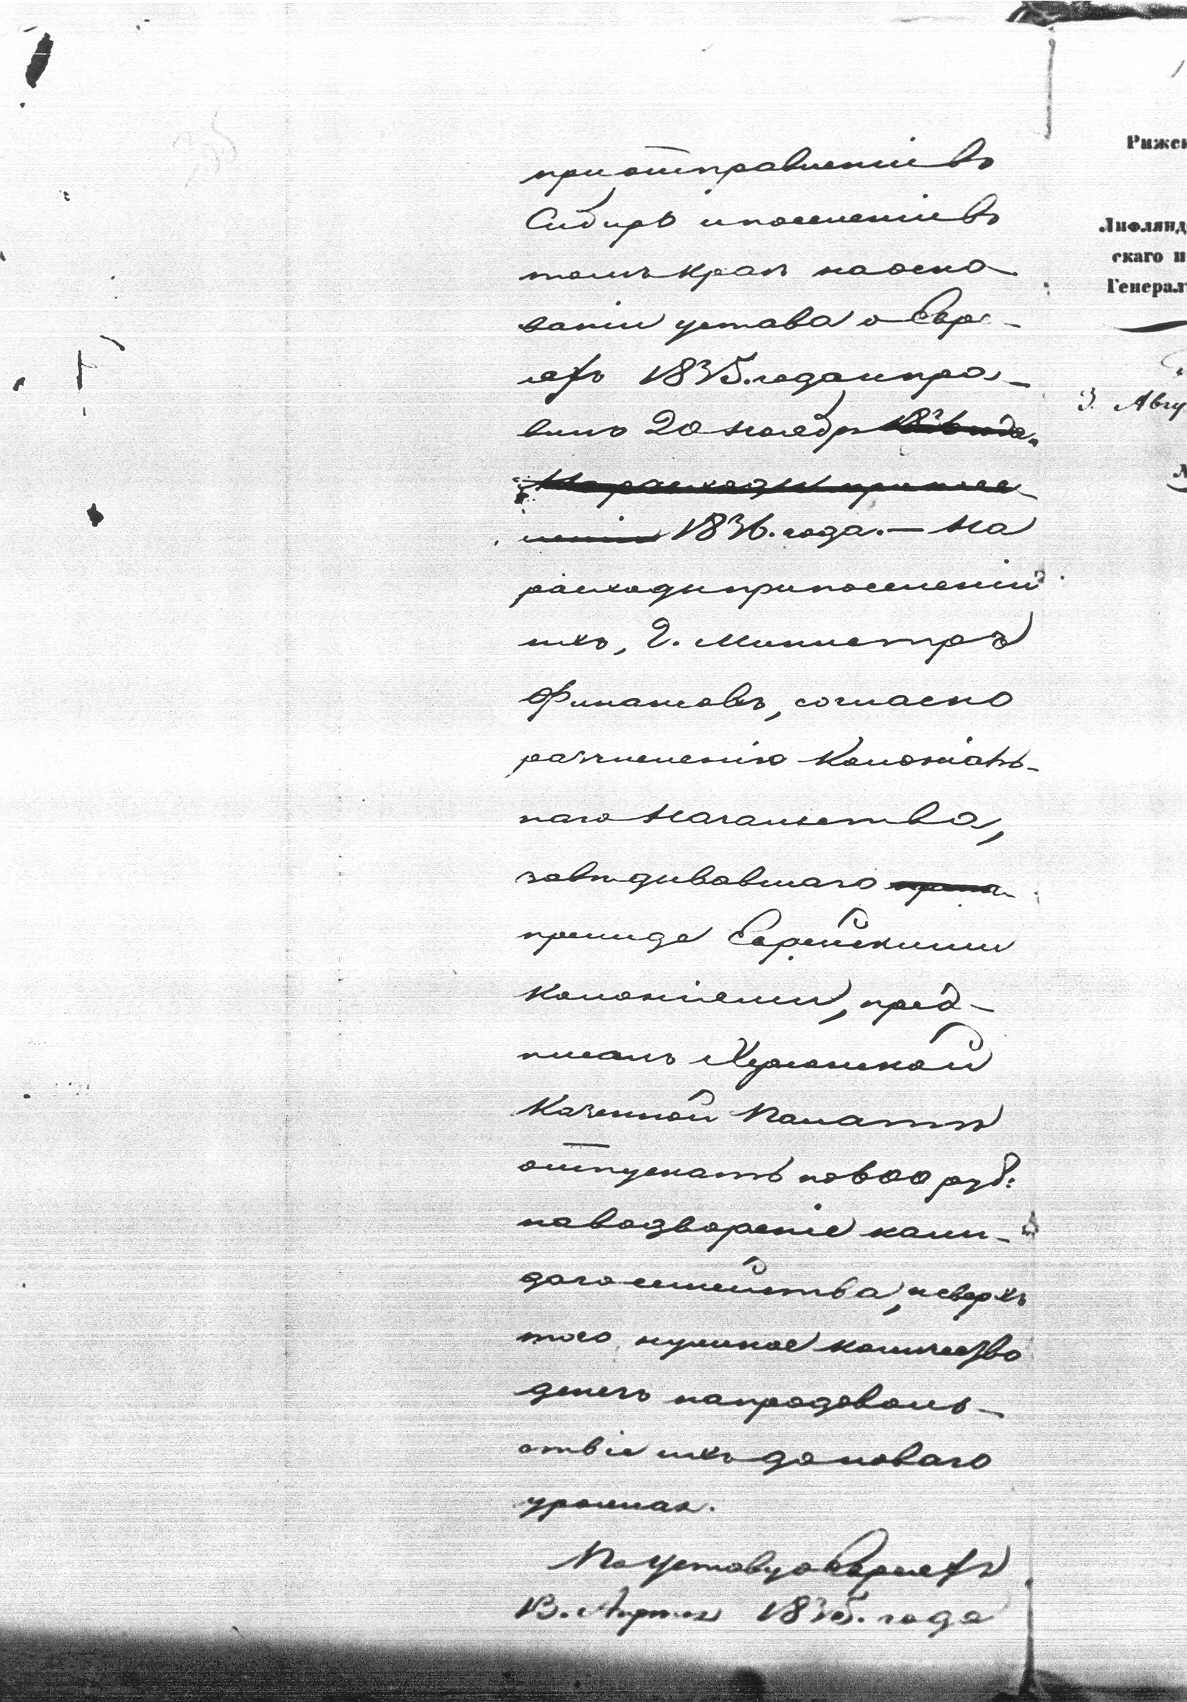 при отправленіи въ
Сибирь и поселеніи въ
томъ краѣ на осно-
ваніи устава о Евре-
яхъ 1835. года и пра-
вилъ 20 Ноября 1836 года.
На расходы при посе-
леніи 1836. года. — На
расходы при поселеніи
ихъ, Г. Министръ
Финансовъ, согласно
разчисленію Колоніаль-
наго Начальства,
завѣдывавшаго
прежде Еврейскими
колоніями, пред-
писалъ Херсонской
Казенной Палатѣ
отпускать по 600 руб:
на водвореніе каж-
даго семейства, и сверхъ
того нужное количество
денегъ на продоволь-
ствіе ихъ до новаго
урожая.
По Уставу о Евреяхъ
13. Апрѣля 1835. года
Рижск
Лифлянд
скаго и
Генерал
3. Авгу